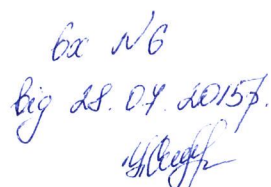 вх № 6
від 28.07.2015р.